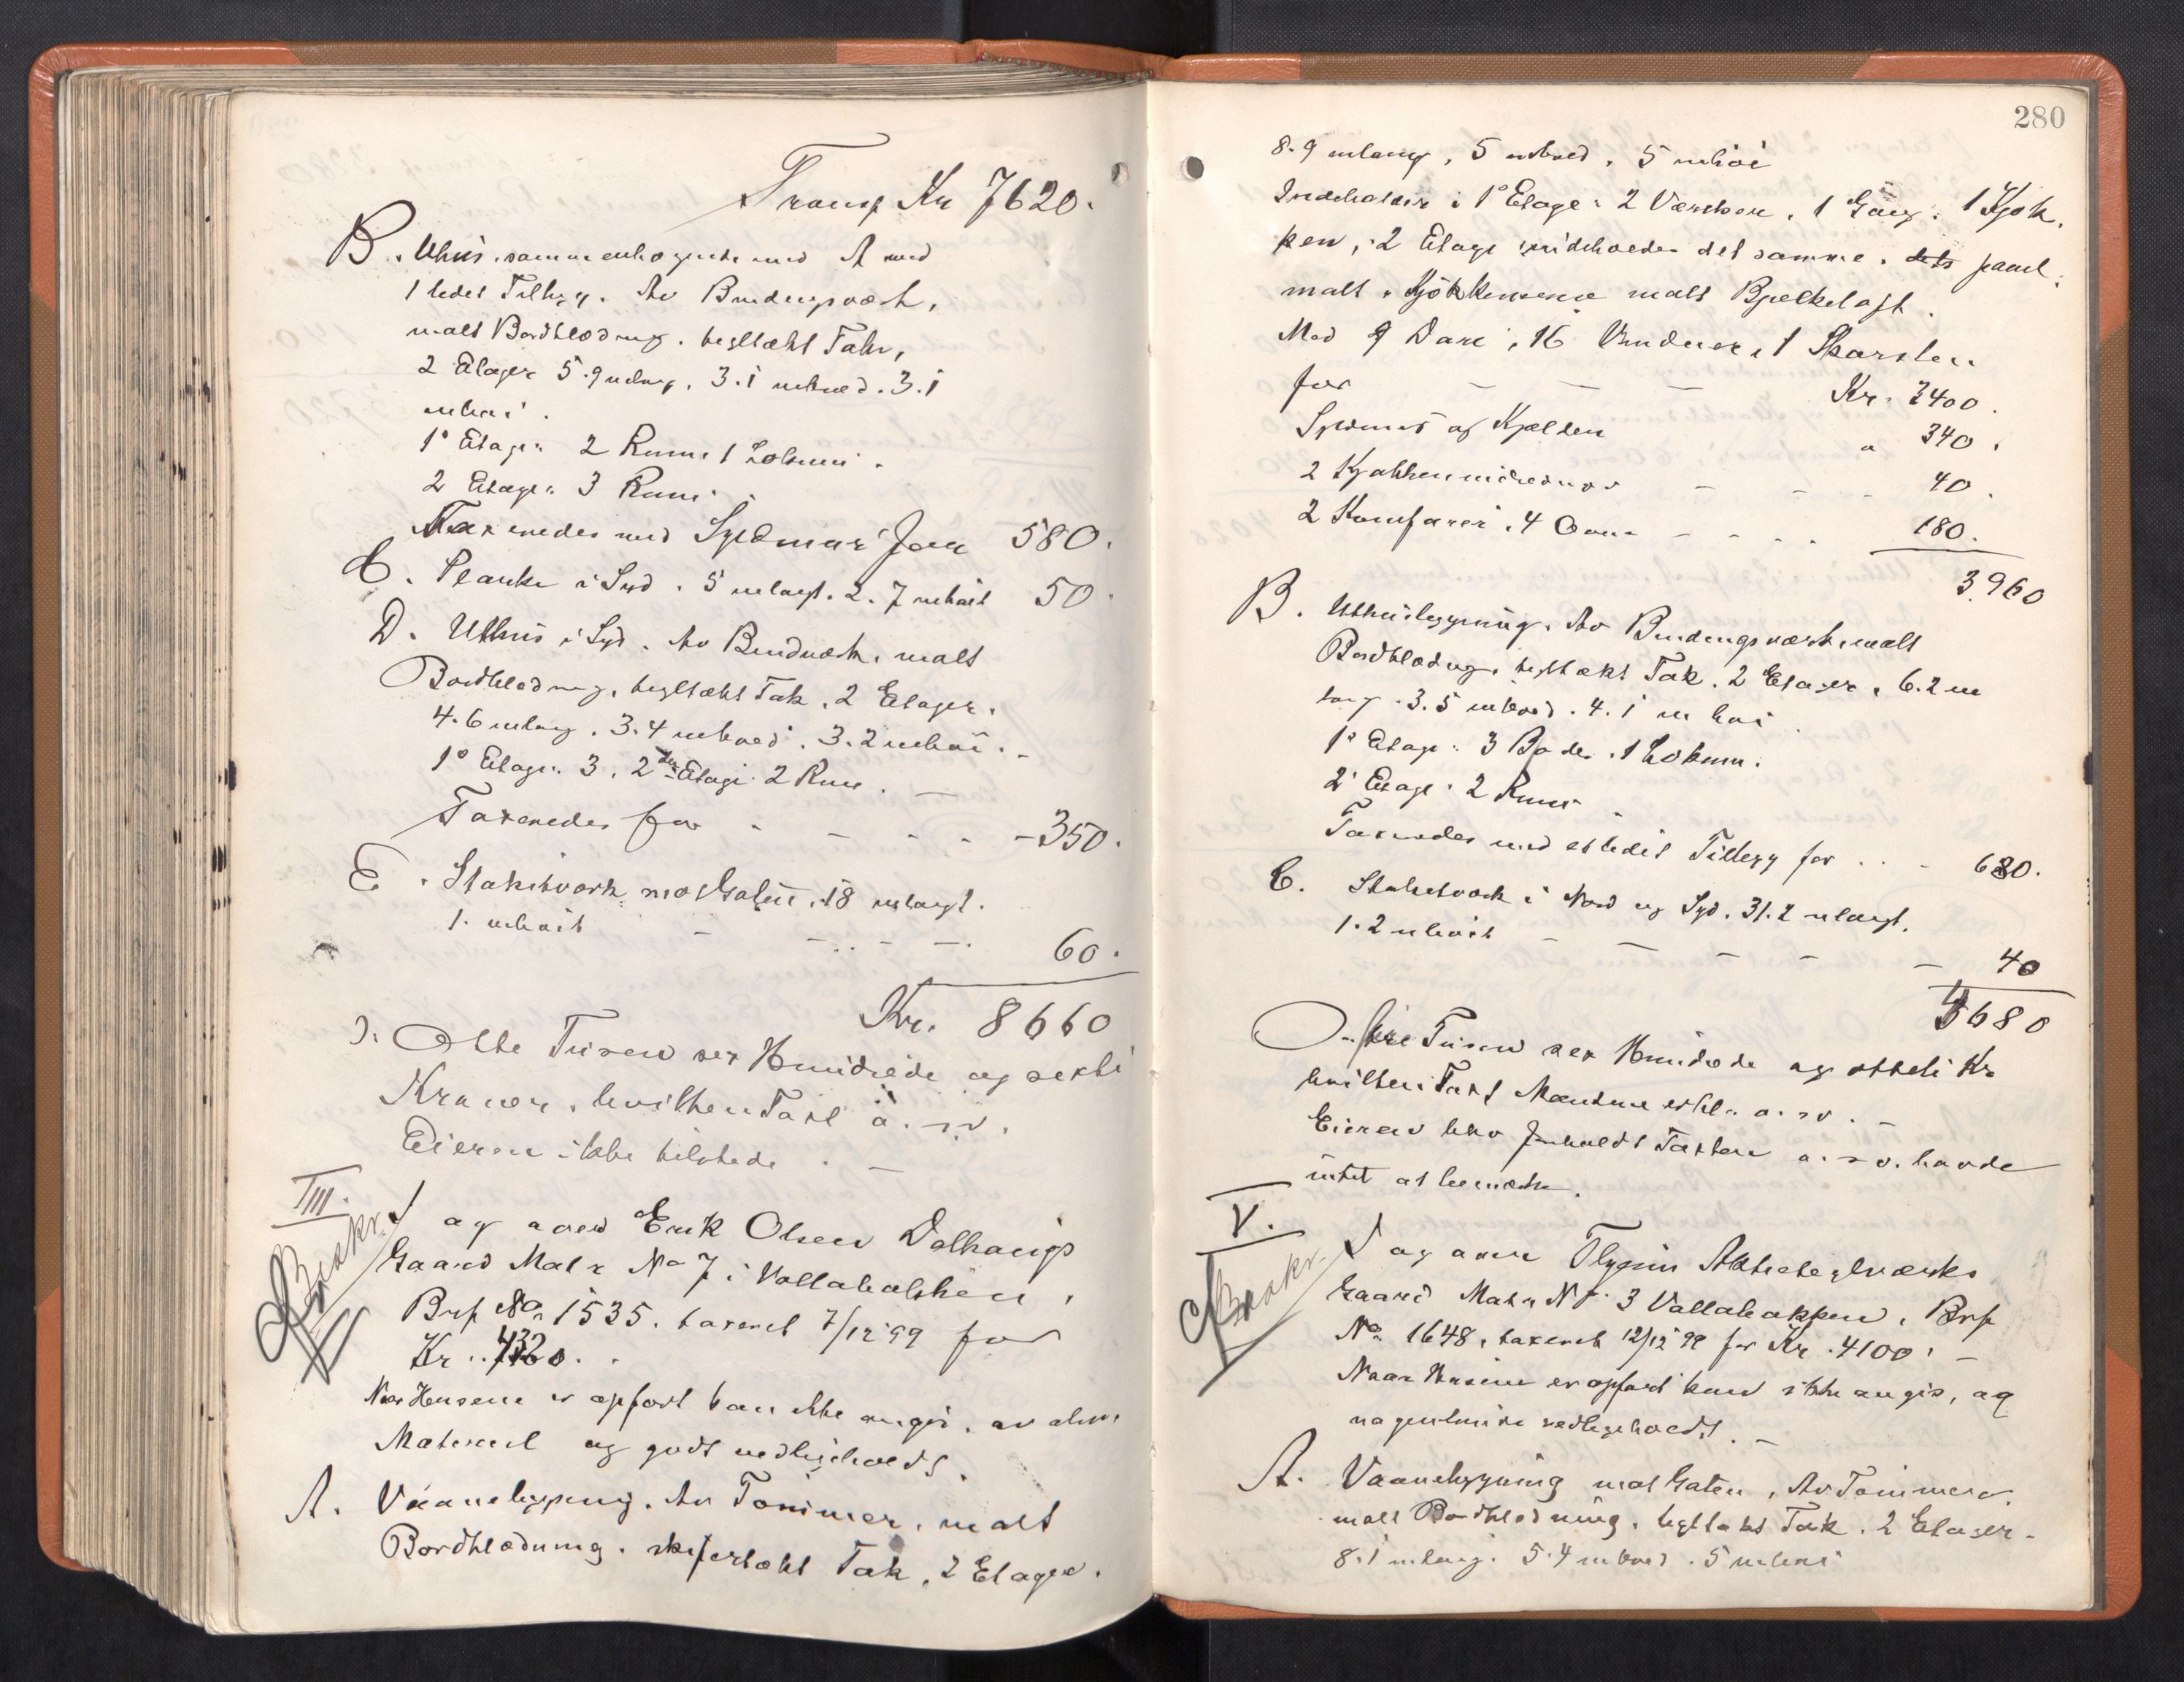 Transp Kr 7620.
B. Uhus. sammenhængende med A med
1 ledet Tilbyg. Av Bindingsværk,
malt Bordklædning. tegltækt Tak,
2 Etager 5.9 mlang. 3.1 mbred. 3.1
mhøi.
1ª Etage: 2 Rum 1 Lokum.
2 Etage: 3 Rum.
Taxeredes med Sydmur for 580.
C. Planke i Syd. 5 mlangt. 2.7 mhøit 50.
D. Uthus i Syd. Av Bindværk. malt
Bordklædning, tegltækt Tak. 2 Etager.
4.6 mlang. 3.4 mbred. 3.2 mhøi. -
1ª Etage: 3, 2den Etage 2 Rum. -
Taxeredes for - - - - 350.
E. Stakitværk mot Gaten. 18 mlangt.
1. mhøit - - - - 60.
Kr. 8660
Otte Tusen sex Hundrede og sexti
Kroner. hvilken Taxt o. s. v.
Eieren ikke tilstede. -
III.
Brakr.
Jag aved Erik Olsen Dalhaugs
Gaard Matr No 7 i Vallabakken,
Brf No 1535. taxeret 7/12 99 for
Kr.
Naar Husene er opført kan ikke angis. av alm.
Materiel og godt vedligeholdt.
A. Vaanebygning. Av Tømmer. malt
Bordklædning. skifertækt Tak. 2 Etager.
280
8.9 mlang, 5 mbred. 5 mhøi
Indeholder i 1ª Etage: 2 Værelser, 1 Gang. 1 Kjøk.
ken, 2 Etage indeholder det samme. panel.
malt. Kjøkkenene malt Bjelkeloft.
Med 9 Døre, 16 Vinduer, 1 Skorsten
for - - - Kr. 3400.
Sydmur og Kjelder " 340.
2 Kjøkkenindredning - - - 40.
2 Komfurer. 4 Ovne - - - - 180.
3960
B. Uthusbygning. Av Bindingsværk. malt
Bordklædning. tegltækt Tak. 2 Etager. 6.2 m
lang. 3.5 mbred. 4.1 m høi
1ª Etage: 3 Boder. 1 Lokum.
2 Etage: 2 Rum.
Taxeredes med et ledet Tillegg for . . - 680.
C. Stakitværk i Nord og Syd. 31.2 mlangt.
1.2 mhøit - - - - - 40
4680
fire Tusen sex Hundrede og otteti Kr
hvilken Taxt Mændene erkl. o. s. v. -
Eieren blev foreholdt Taxten o. s. v. havde
intet at bemerke.
V.
Brakr.
Jag aver Flyein Aktieteglværks
Gaard Matr No 3 Vallabakken, Brf
No 1648. taxeret 12/12 99 for Kr. 4100. -
Naar Husene er opført kan ikke angis, og
nogenlunde vedligeholdt. -
A. Vaanebygning mot Gaten. Av Tømmer.
malt Bordklædning. tegltækt Tak. 2 Etager.
8.1 mlang. 5.4 mbred. 5 mhøi